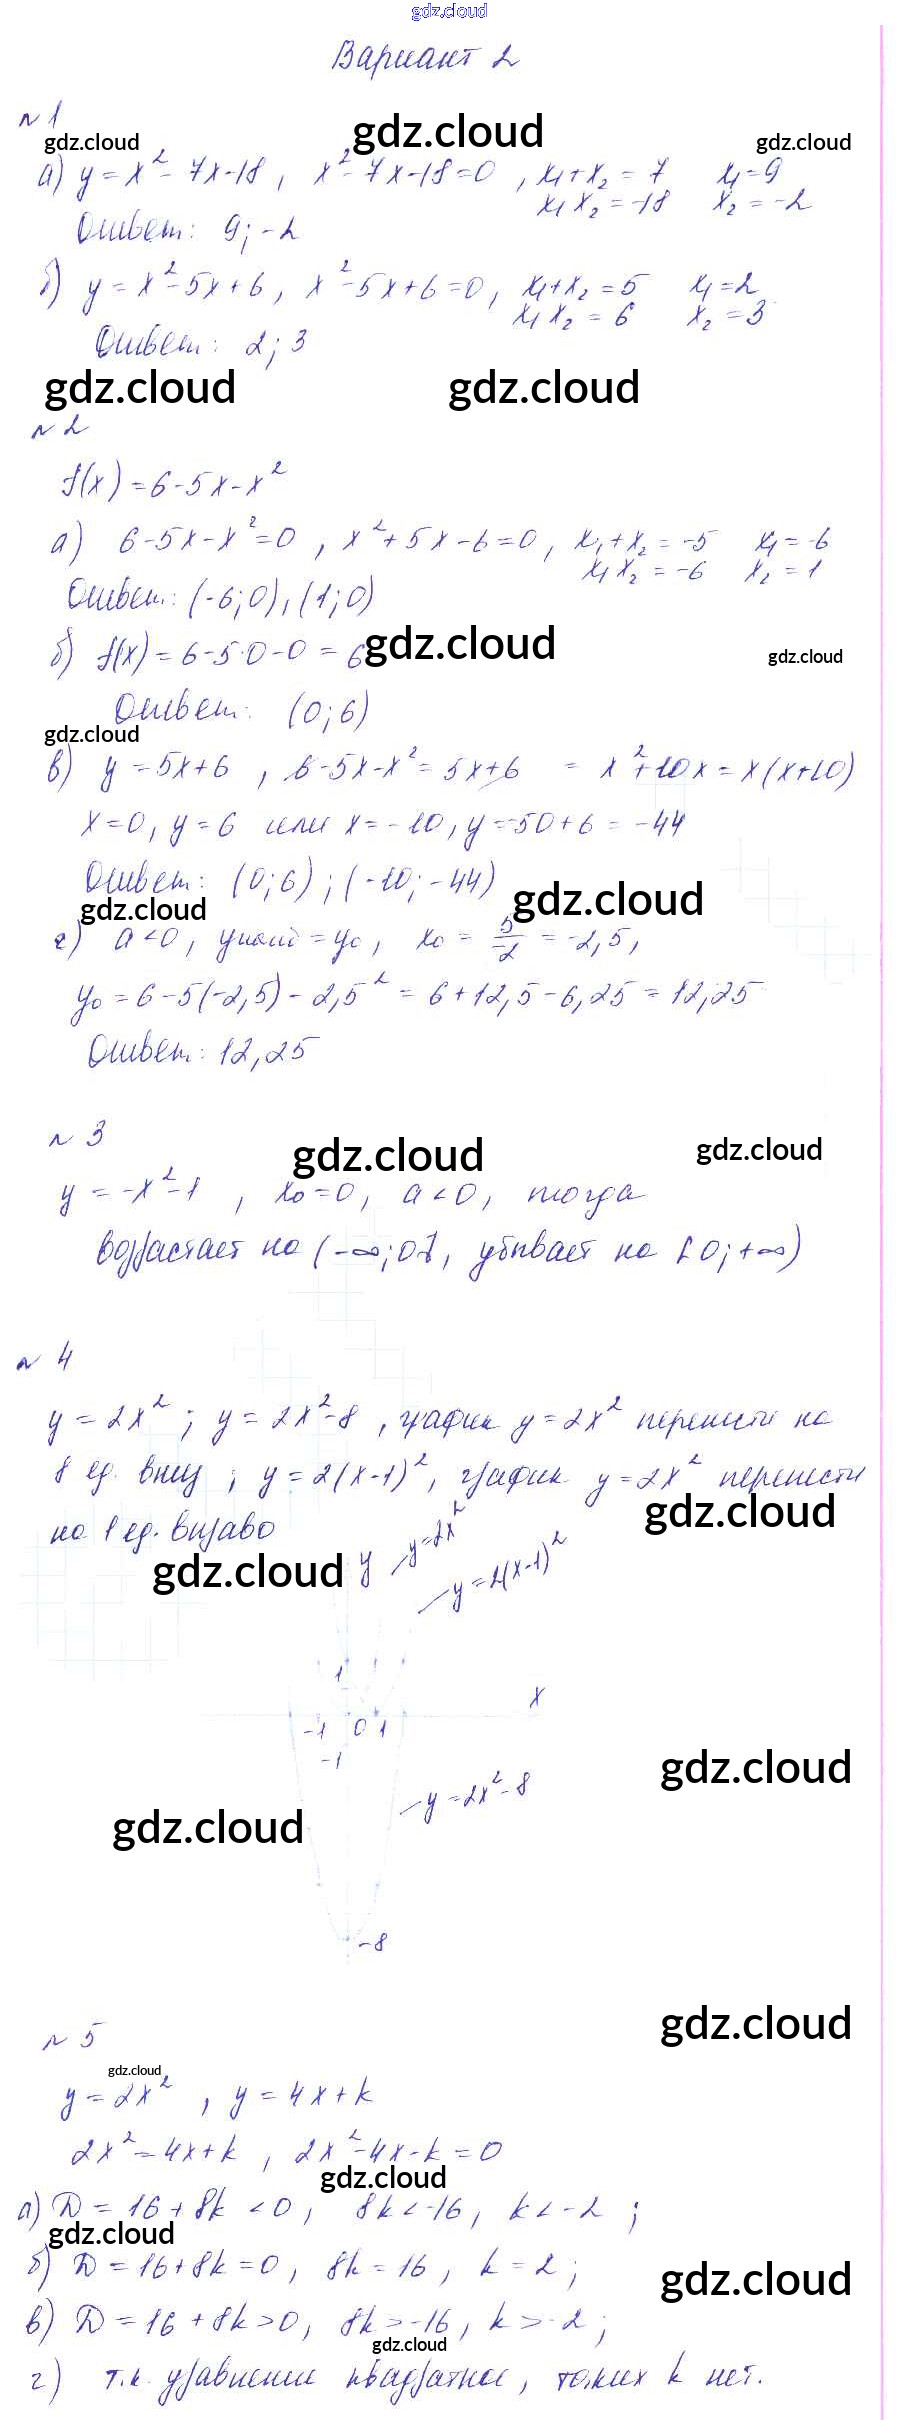 gdz.cloud
Вариант 2
№1
gdz.cloud gdz.cloud gdz.cloud
а) y = x² - 7x - 18 , x² - 7x - 18 = 0 , x₁ + x₂ = 7 x₁ = 9
x₁ x₂ = -18 x₂ = -2
Ответ: 9; -2
б) y = x² - 5x + 6 , x² - 5x + 6 = 0 , x₁ + x₂ = 5 x₁ = 2
x₁ x₂ = 6 x₂ = 3
Ответ: 2; 3
gdz.cloud gdz.cloud
№2
f(x) = 6 - 5x - x²
а) 6 - 5x - x² = 0 , x² + 5x - 6 = 0 , x₁ + x₂ = -5 x₁ = -6
x₁ x₂ = -6 x₂ = 1
Ответ: (-6; 0), (1; 0)
б) f(x) = 6 - 5·0 - 0 = 6
gdz.cloud gdz.cloud
Ответ: (0; 6)
gdz.cloud
в) y = 5x + 6 , 6 - 5x - x² = 5x + 6 = x² + 10x = x(x + 10)
x = 0, y = 6 или x = -10, y = -50 + 6 = -44
Ответ: (0; 6) ; (-10; -44)
gdz.cloud gdz.cloud
г) a < 0 , yнаиб = y₀ , x₀ = 5/-2 = -2,5 ,
y₀ = 6 - 5(-2,5) - 2,5² = 6 + 12,5 - 6,25 = 12,25
Ответ: 12,25
№3
gdz.cloud gdz.cloud
y = -x² - 1 , x₀ = 0, a < 0, тогда
возрастает на (-∞; 0], убывает на [0; +∞)
№4
y = 2x² ; y = 2x² - 8 , график y = 2x² перенести на
8 ед. вниз ; y = 2(x - 1)² , график y = 2x² перенести
на 1 ед. вправо
gdz.cloud
gdz.cloud
y y = 2x²
y = 2(x - 1)²
1
x
-1 0 1
-1
gdz.cloud
y = 2x² - 8
gdz.cloud
-8
gdz.cloud
№5
gdz.cloud
y = 2x² , y = 4x + k
2x² = 4x + k , 2x² - 4x - k = 0
gdz.cloud
а) D = 16 + 8k < 0 , 8k < -16 , k < -2 ;
gdz.cloud
б) D = 16 + 8k = 0 , 8k = 16 , k = 2 ;
gdz.cloud
в) D = 16 + 8k > 0 , 8k > -16 , k > -2 ;
gdz.cloud
г) т.к. уравнение квадратное, таких k нет.